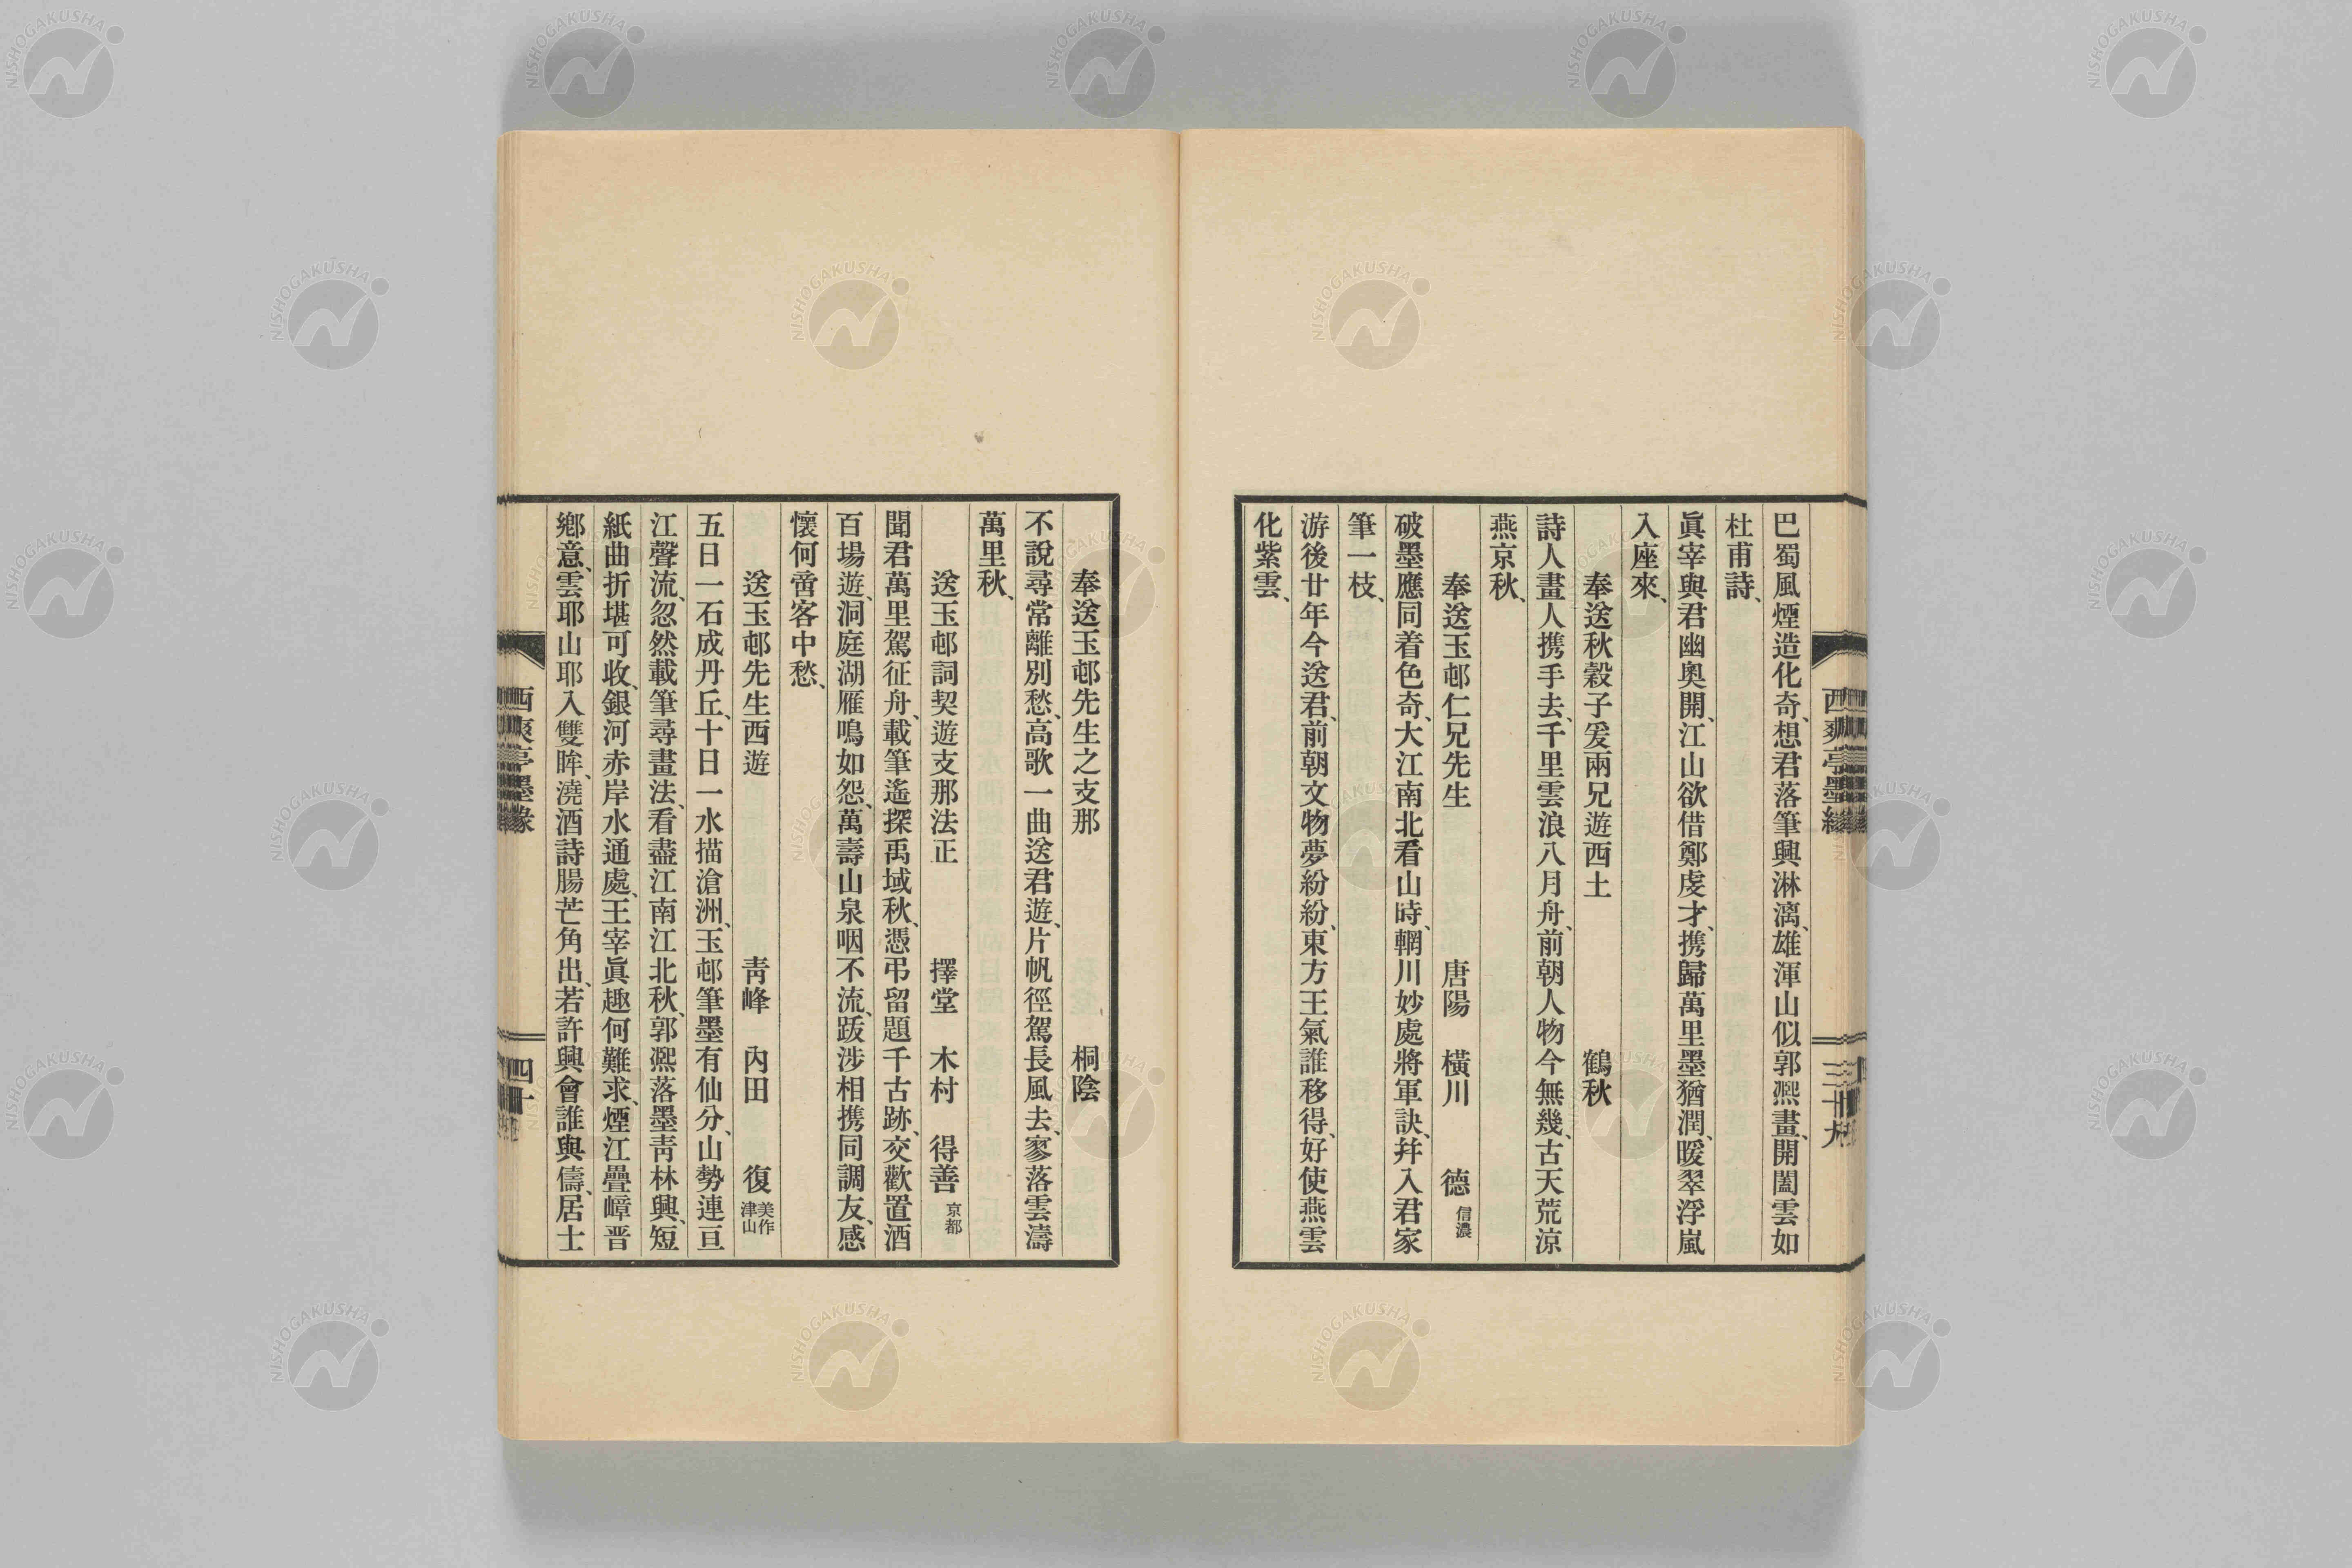 巴蜀風煙造化奇、想君落筆興淋漓、雄渾山似郭熙畫、開闔雲如
杜甫詩、
眞宰與君幽奥開、江山欲借鄭虔才、携歸萬里墨猶潤、暖翠浮嵐
入座來、
奉送秋穀子爰兩兄遊西土　鶴秋
詩人畫人携手去、千里雲浪八月舟、前朝人物今無幾、古天荒涼
燕京秋、
奉送玉邨仁兄先生　唐陽　橫川　德　信濃
破墨應同着色奇、大江南北看山時、輞川妙處將軍訣、幷入君家
筆一枝、
游後廿年今送君、前朝文物夢紛紛、東方王氣誰移得、好使燕雲
化紫雲、
西爽亭墨緣
三十九
奉送玉邨先生之支那　桐陰
不說尋常離別愁、高歌一曲送君遊、片帆徑駕長風去、寥落雲濤
萬里秋、
送玉邨詞契遊支那法正　擇堂　木村　得善　京都
聞君萬里駕征舟、載筆遙探禹域秋、憑弔留題千古跡、交歡置酒
百場遊、洞庭湖雁鳴如怨、萬壽山泉咽不流、跋涉相携同調友、感
懷何啻客中愁、
送玉邨先生西遊　靑峰　內田　復　美作津山
五日一石成丹丘、十日一水描滄洲、玉邨筆墨有仙分、山勢連亘
江聲流、忽然載筆尋畫法、看盡江南江北秋、郭熙落墨靑林興、短
紙曲折堪可收、銀河赤岸水通處、王宰眞趣何難求、煙江疊嶂晋
鄕意、雲耶山耶入雙眸、澆酒詩腸芒角出、若許興會誰與儔、居士
西爽亭墨緣
四十